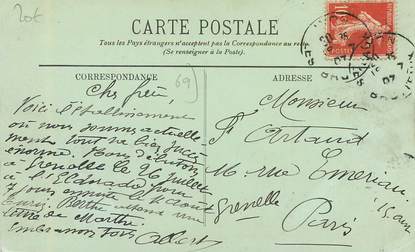 20€
CARTE POSTALE
Tous les Pays étrangers n'acceptent pas la Correspondance au recto
(Se renseigner à la Poste).
CORRESPONDANCE
69
ADRESSE
Cher frère,
Voici l'établissement
où nous sommes actuelle-
ment tout va bien succès
énorme. Nous débutons
à Grenoble le 26 juillet
à l'Eldorado pour
7 jours ensuite
Berthe attend une
lettre de Marthe.
Embrassons tous
Albert
Monsieur
F Artaud
rue Emeriau
Grenelle
Paris